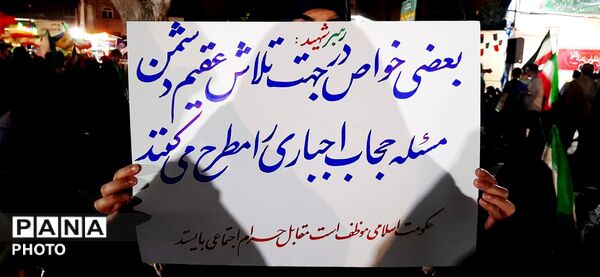 رهبر شهید:
بعضی خواص در جهت تلاش عقیم دشمن
مسئله حجاب اجباری را مطرح می‌کنند
حکومت اسلامی موظف است مقابل حرام اجتماعی بایستد
PANA
PHOTO